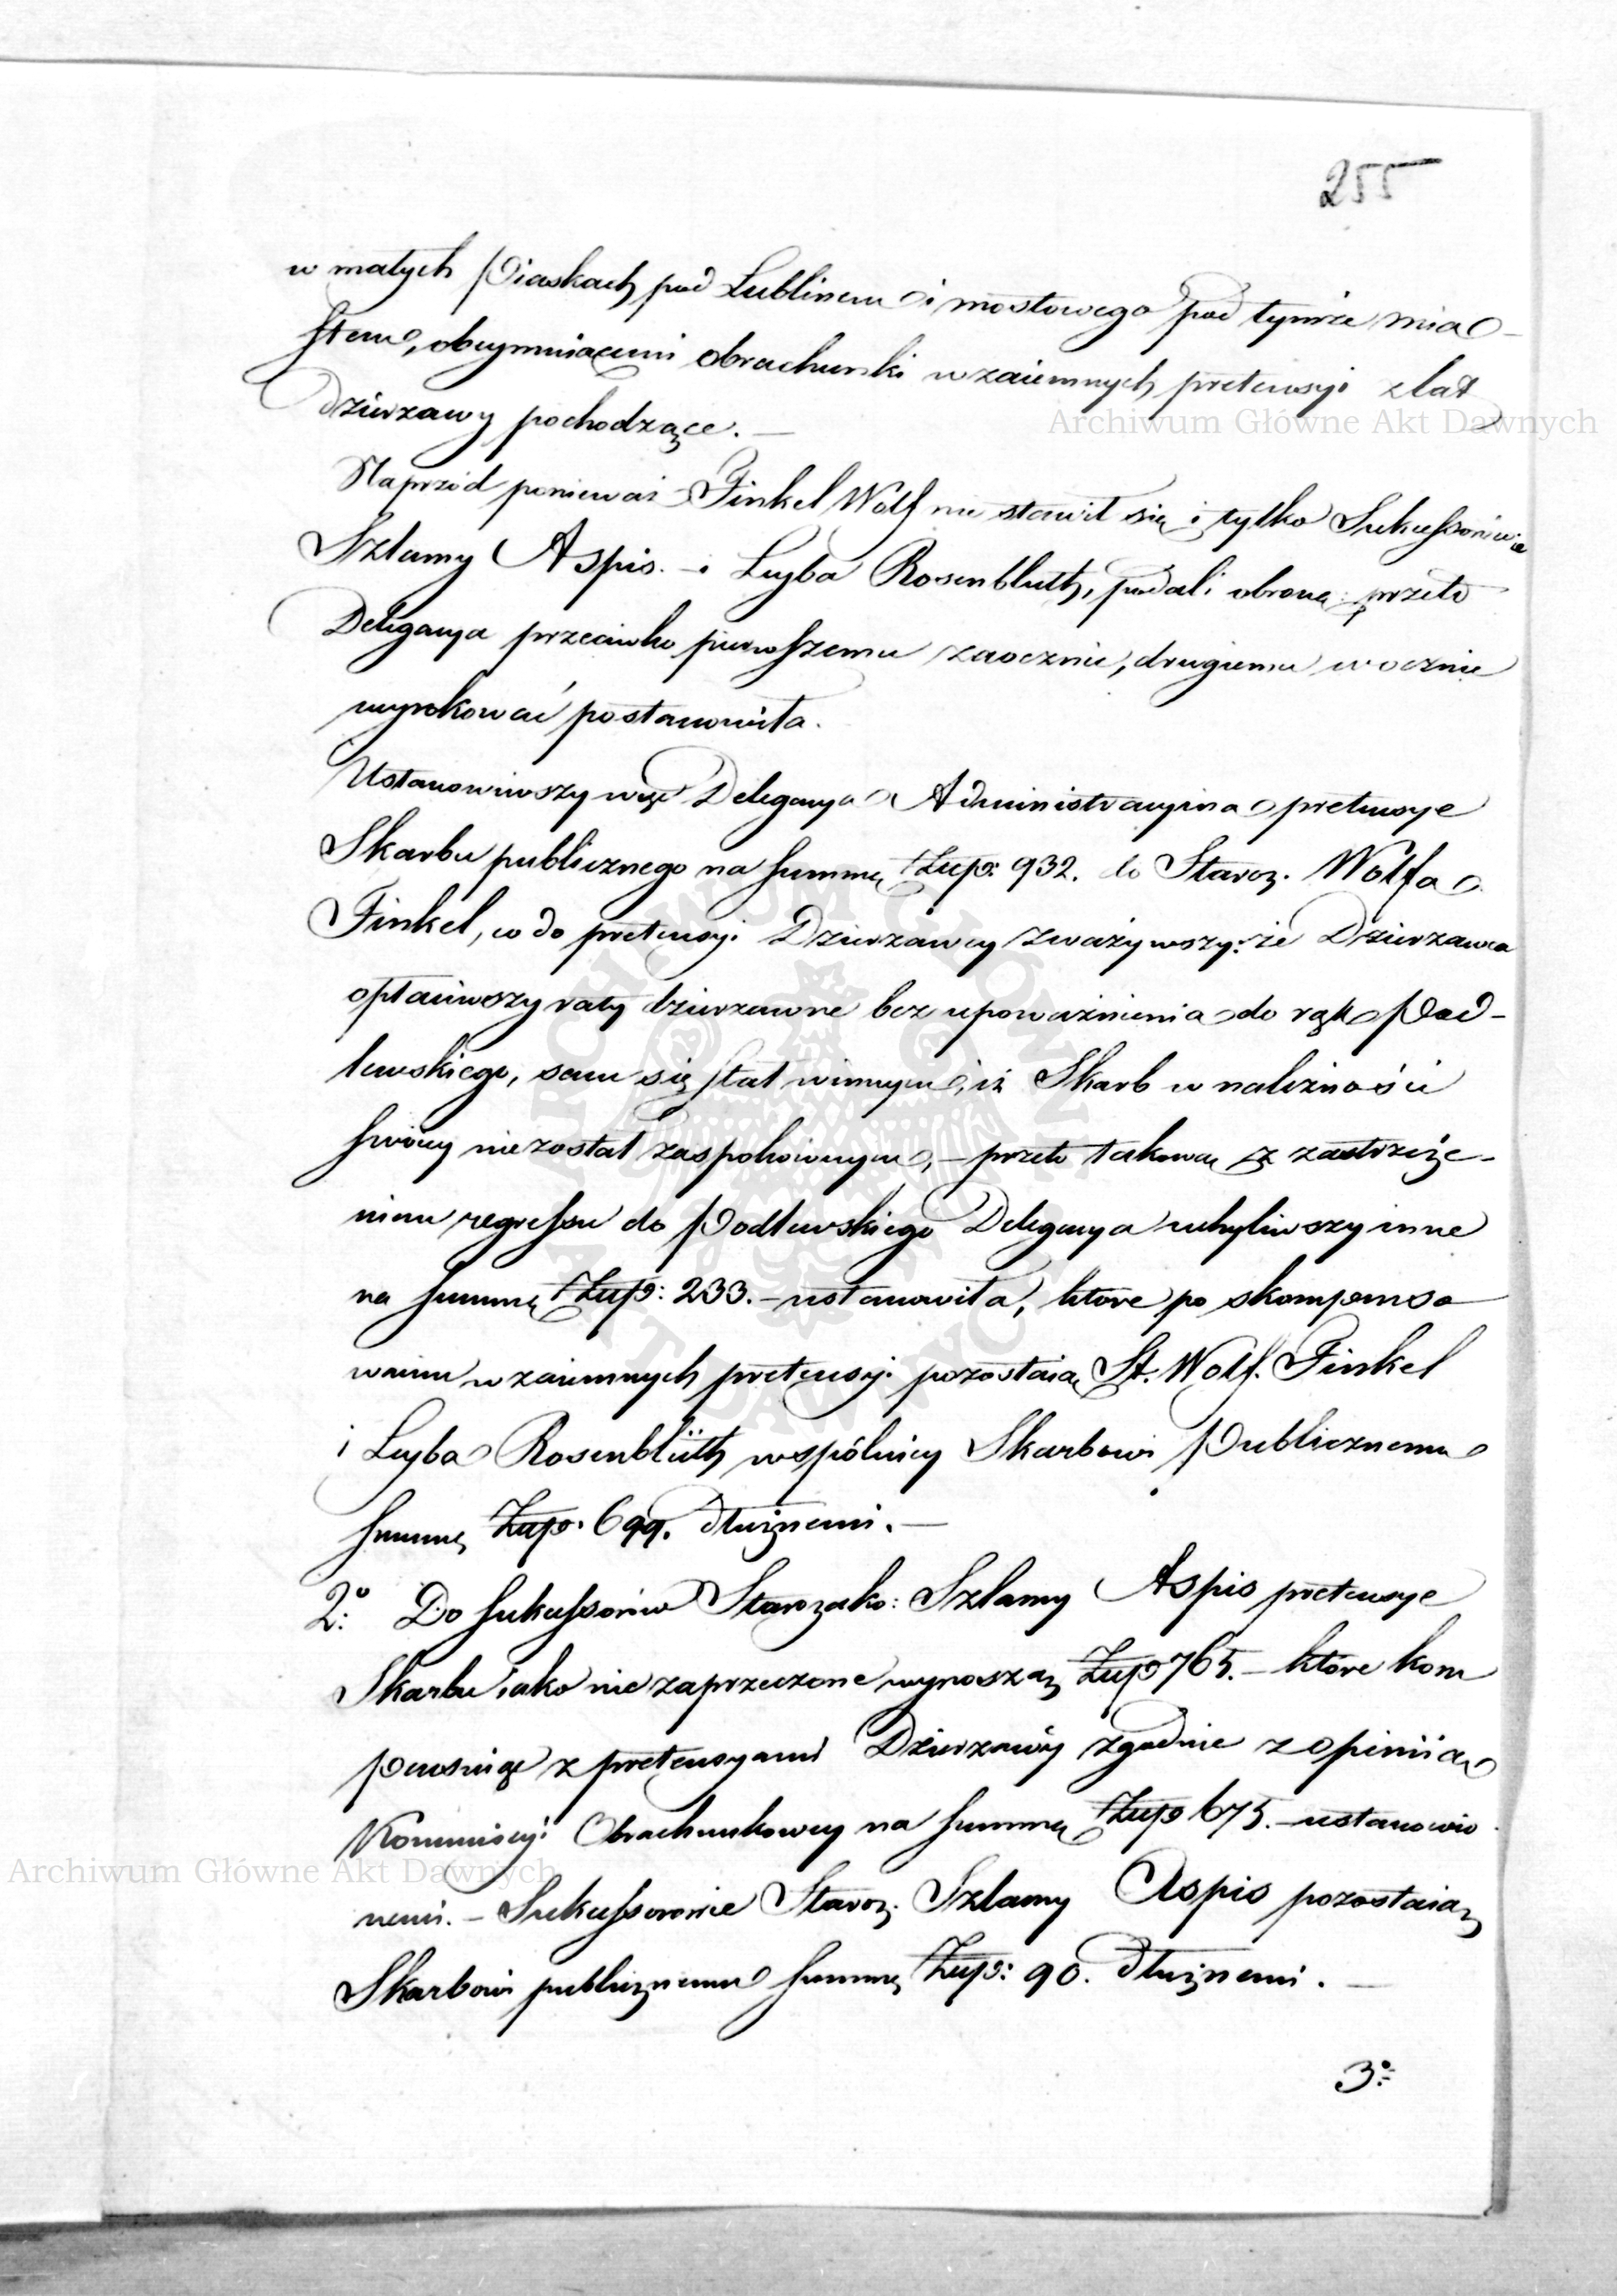 255
w małych Piaskach pod Lublinem i mostowego pod tymże mia-
stem, obeymniącemi obrachunki wzaiemnych pretensyi z lat
Dzierzawy pochodzące. —
Naprzód ponieważ Finkel Wolf nie stawił się i tylko Sukcessorowie
Szlamy Aspis. - i Leyba Rosenbluth, podali obronę: przeto
Delegacya przeciwko pierwszemu zaocznie, drugiemu w ocznie
wyrokować postanowiła.
Ustanowiwszy więc Delegacya Administracyina pretensye
Skarbu publicznego na summę Złłp: 932. do Staroz. Wolfa
Finkel, co do pretensyi Dzierzawcy zważywszy: że Dzierzawca
opłaciwszy raty dzierzawne bez upoważnienia do rąk Pod-
lewskiego, sam się stał winnym, iż Skarb w należności
swoiey niezostał zaspokoionym, - przeto takową z zastrzeże-
niem regressu do Podlewskiego Delegacya uchyliwszy inne
na summę Złłp: 233. - ustanowiła, które po skompenso
waniu wzaiemnych pretensyi pozostaią St. Wolf. Finkel
i Leyba Rosenblüth wspólnicy Skarbowi Publicznemu
summę Złłp. 699. dłużnemi. —
2º: Do sukcessorów Starozako: Szlamy Aspis pretensye
Skarbu iako nie zaprzeczone wynoszą Złłp 765. - które kom
pensuiąc z pretensyami Dzierzawcy zgodnie z opiniią
Kommissyi Obrachunkowey na summę Złłp 675. - ustanowio
nemi. - Sukcessorowie Staroz. Szlamy Aspis pozostaią
Skarbowi publicznemu summę Złłp: 90. dłużnemi. —
3º:
Archiwum Główne Akt Dawnych
Archiwum Główne Akt Dawnych
ARCHIWUM GŁÓWNE AKT DAWNYCH